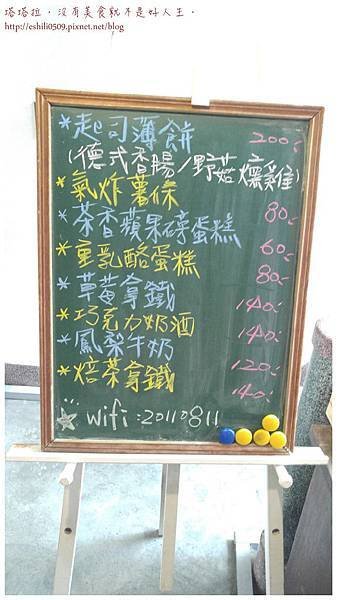 塔塔拉。沒有美食就不是好人生。
http://eshili0509.pixnet.net/blog
*起司薄餅 200.-
(德式香腸/野菇燻雞)
*氣炸薯條 80.-
*茶香蘋果磚蛋糕 60.-
*重乳酪蛋糕 80.-
*草莓拿鐵 140.-
*巧克力奶酒 140.-
*鳳梨牛奶 120.-
*焙茶拿鐵 140.-
☆ wifi:20110811